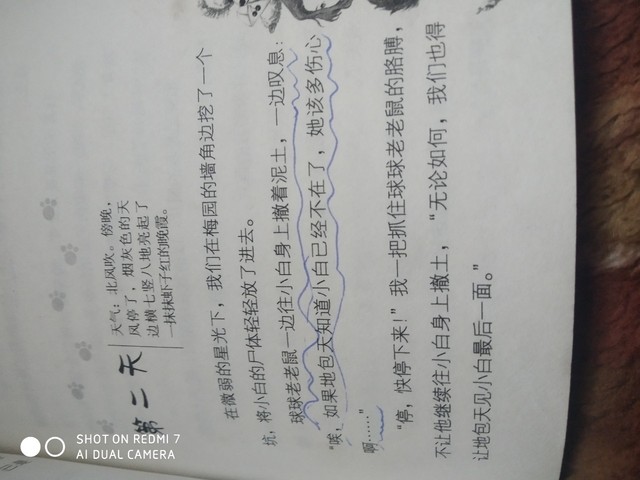 第二天
天气：北风吹。傍晚，
风停了，烟灰色的天
边横七竖八地亮起了
一抹抹虾子红的晚霞。
在微弱的星光下，我们在梅园的墙角边挖了一个
坑，将小白的尸体轻轻放了进去。
球球老老鼠一边往小白身上撒着泥土，一边叹息：
“唉，如果地包天知道小白已经不在了，她该多伤心
啊……”
“停，快停下来！”我一把抓住球球老老鼠的胳膊，
不让他继续往小白身上撒土，“无论如何，我们也得
让地包天见小白最后一面。”
SHOT ON REDMI 7
AI DUAL CAMERA